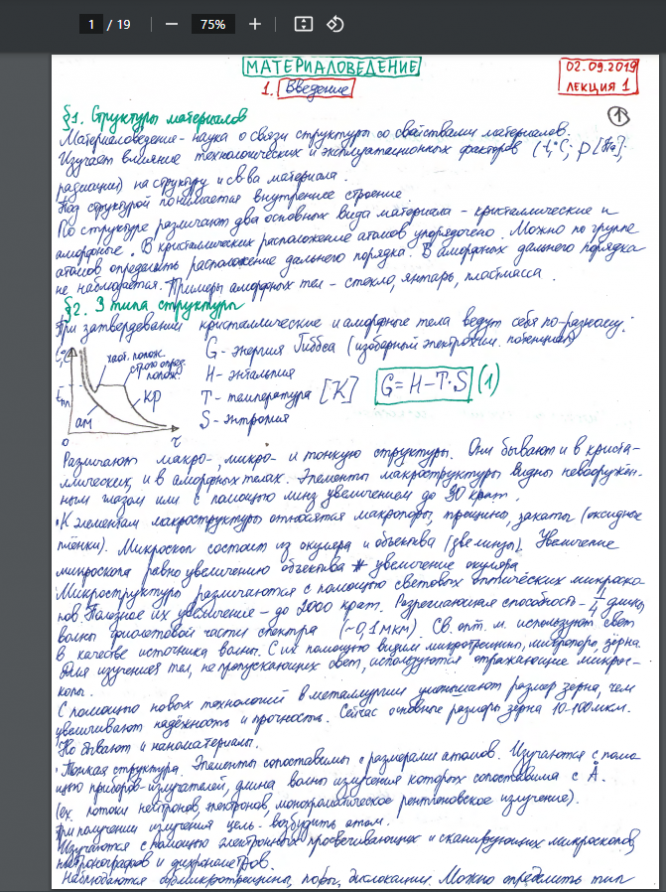 1 / 19 — 75% +
МАТЕРИАЛОВЕДЕНИЕ
02.09.2019
ЛЕКЦИЯ 1
1. Введение
1
§1. Структуры материалов
Материаловедение - наука о связи структуры со свойствами материалов.
Изучает влияние технологических и эксплуатационных факторов (t,°C; p [Па];
радиации) на структуру и св-ва материала.
Под структурой понимается внутреннее строение.
По структуре различают два основных вида материала - кристаллические и
аморфные. В кристаллических расположение атомов упорядочено. Можно по группе
атомов определить расположение дальнего порядка. В аморфных дальнего порядка
не наблюдается. Примеры аморфных тел - стекло, янтарь, пластмасса.
§2. 3 типа структуры
При затвердевании кристаллические и аморфные тела ведут себя по-разному:
G - энергия Гиббса (изобарный потенциал)
хаот. полож.
строго опред. полож.
H - энтальпия
T - температура [K]
G = H - T·S (1)
кр
ам
S - энтропия
0 τ
Различают макро-, микро- и тонкую структуры. Они бывают и в криста-
ллических, и в аморфных телах. Элементы макроструктуры видны невооружён-
ным глазом или с помощью линз увеличением до 30 крат.
К элементам макроструктуры относятся макропоры, трещины, закаты (оксидные
плёнки). Микроскоп состоит из окуляра и объектива (две линзы). Увеличение
микроскопа равно увеличению объектива * увеличение окуляра.
Микроструктуры различаются с помощью световых оптических микроско-
пов. Полезное их увеличение - до 2000 крат. Разрешающая способность - 1/4 длины
волны фиолетовой части спектра (~0,1 мкм). Св. опт. м. используют свет
в качестве источника волны. С их помощью видим микротрещины, микропоры, зёрна.
Для изучения тел, не пропускающих свет, используются отражающие микрос-
копы.
С помощью новых технологий в металлургии уменьшают размер зерна, чем
увеличивают надёжность и прочность. Сейчас основные размеры зерна 10-100 мкм.
Но бывают и наноматериалы.
Тонкая структура. Элементы сопоставимы с размерами атомов. Изучаются с помо-
щью приборов-излучателей, длина волны излучения которых сопоставима с Å.
(ex. потоки нейтронов, электронов, монохроматическое рентгеновское излучение).
При получении излучения цель - возбудить атом.
Изучаются с помощью электронных просвечивающих и сканирующих микроскопов,
нейтронографов и дифрактометров.
Наблюдаются субмикротрещины, поры, дислокации. Можно определить тип